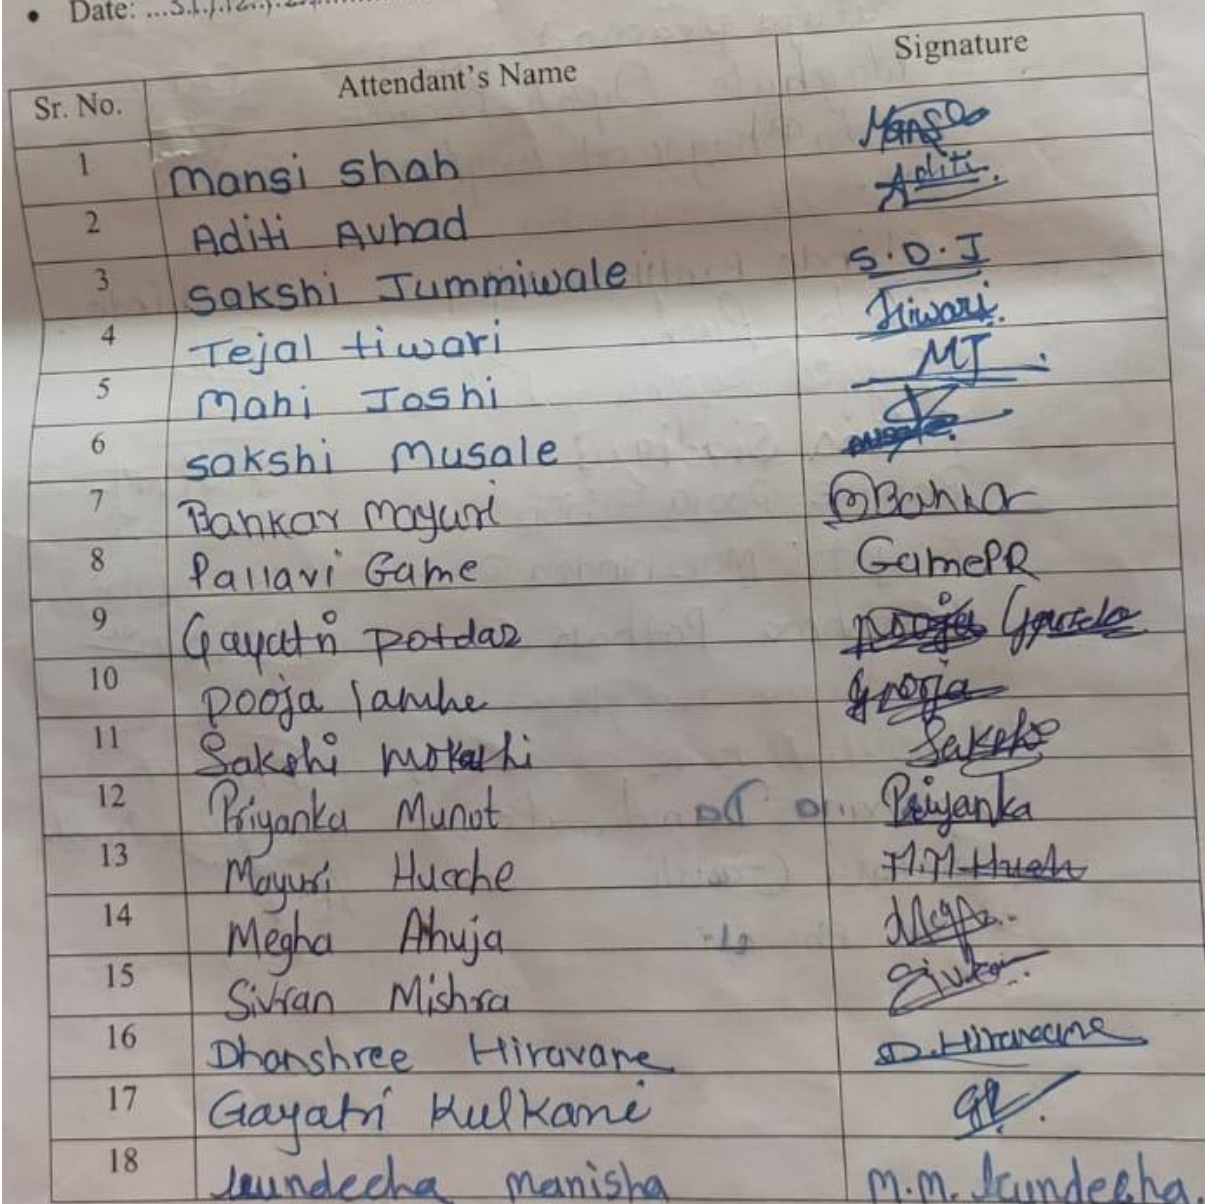 • Date:
Sr. No. Attendant's Name Signature
1 Mansi Shah Mansi
2 Aditi Avhad Aditi
3 Sakshi Jummiwale S.D.J
4 Tejal tiwari Tiwari
5 Mahi Joshi MJ
6 Sakshi Musale
7 Bankar Mayuri Bankar
8 Pallavi Game GamePR
9 Gayatri potdar
10 Pooja lamhe Pooja
11 Sakshi Sakshi
12 Priyanka Munot Priyanka
13 Mayuri Hucche
14 Megha Ahuja
15 Sivran Mishra
16 Dhanshree Hiravane D.Hiravane
17 Gayatri Kulkarni
18 Manisha M.M.